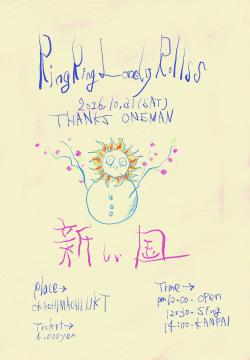 RingRing Lonely Rollss
2026.10.31(SAT)
THANKS ONEMAN
新しい国
place→
OKACHIMACHI UKT
Ticket→
4.000yen
Time→
pm12:00- OPEN
12:30-
14:00- KANPAI